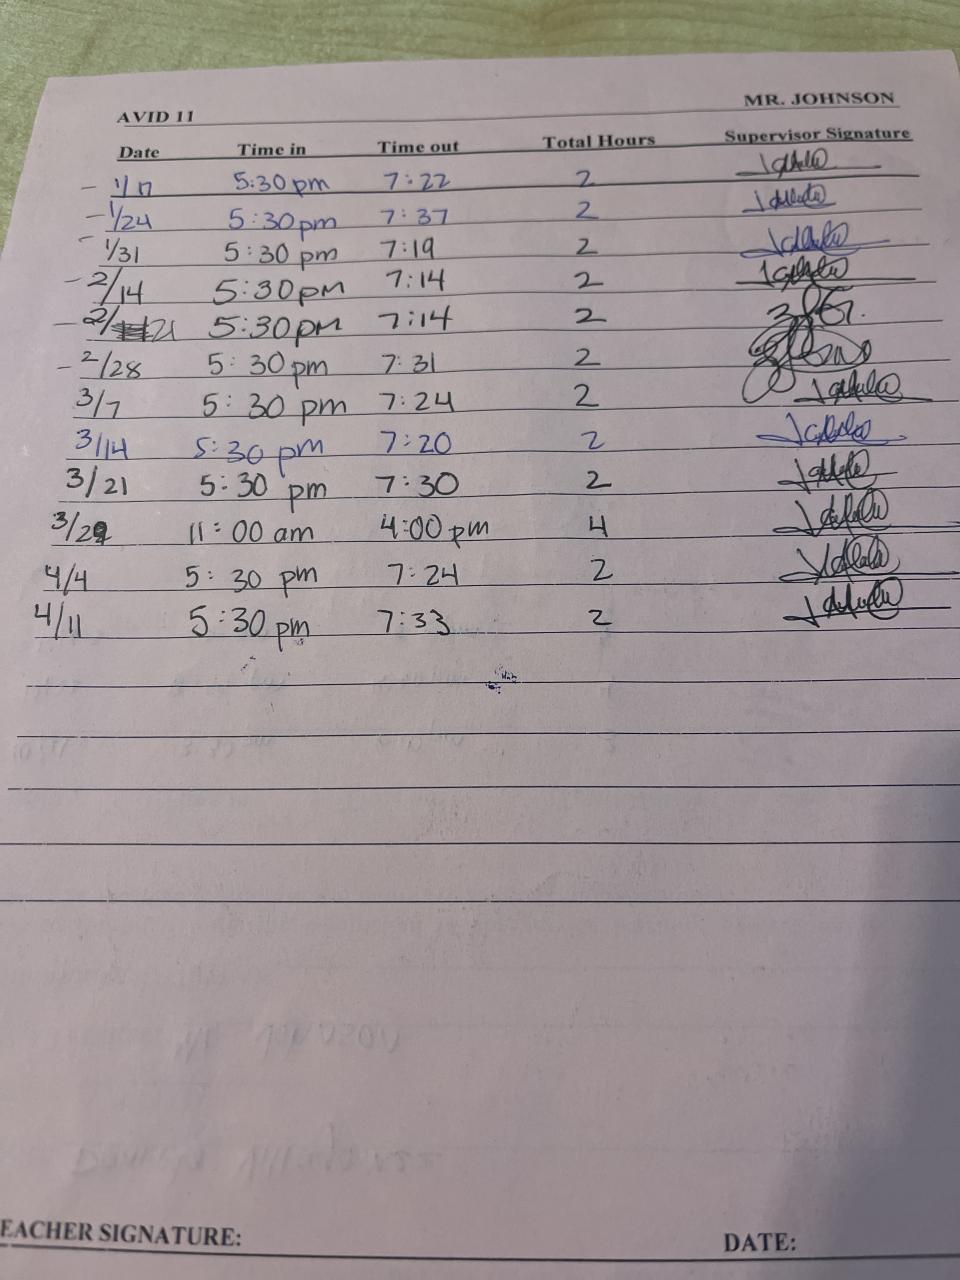 AVID 11 MR. JOHNSON
Date Time in Time out Total Hours Supervisor Signature
- 1/17 5:30 pm 7:22 2
- 1/24 5:30 pm 7:37 2
- 1/31 5:30 pm 7:19 2
- 2/14 5:30 pm 7:14 2
- 2/21 5:30 pm 7:14 2
- 2/28 5:30 pm 7:31 2
3/7 5:30 pm 7:24 2
3/14 5:30 pm 7:20 2
3/21 5:30 pm 7:30 2
3/29 11:00 am 4:00 pm 4
4/4 5:30 pm 7:24 2
4/11 5:30 pm 7:33 2
EACHER SIGNATURE: DATE: